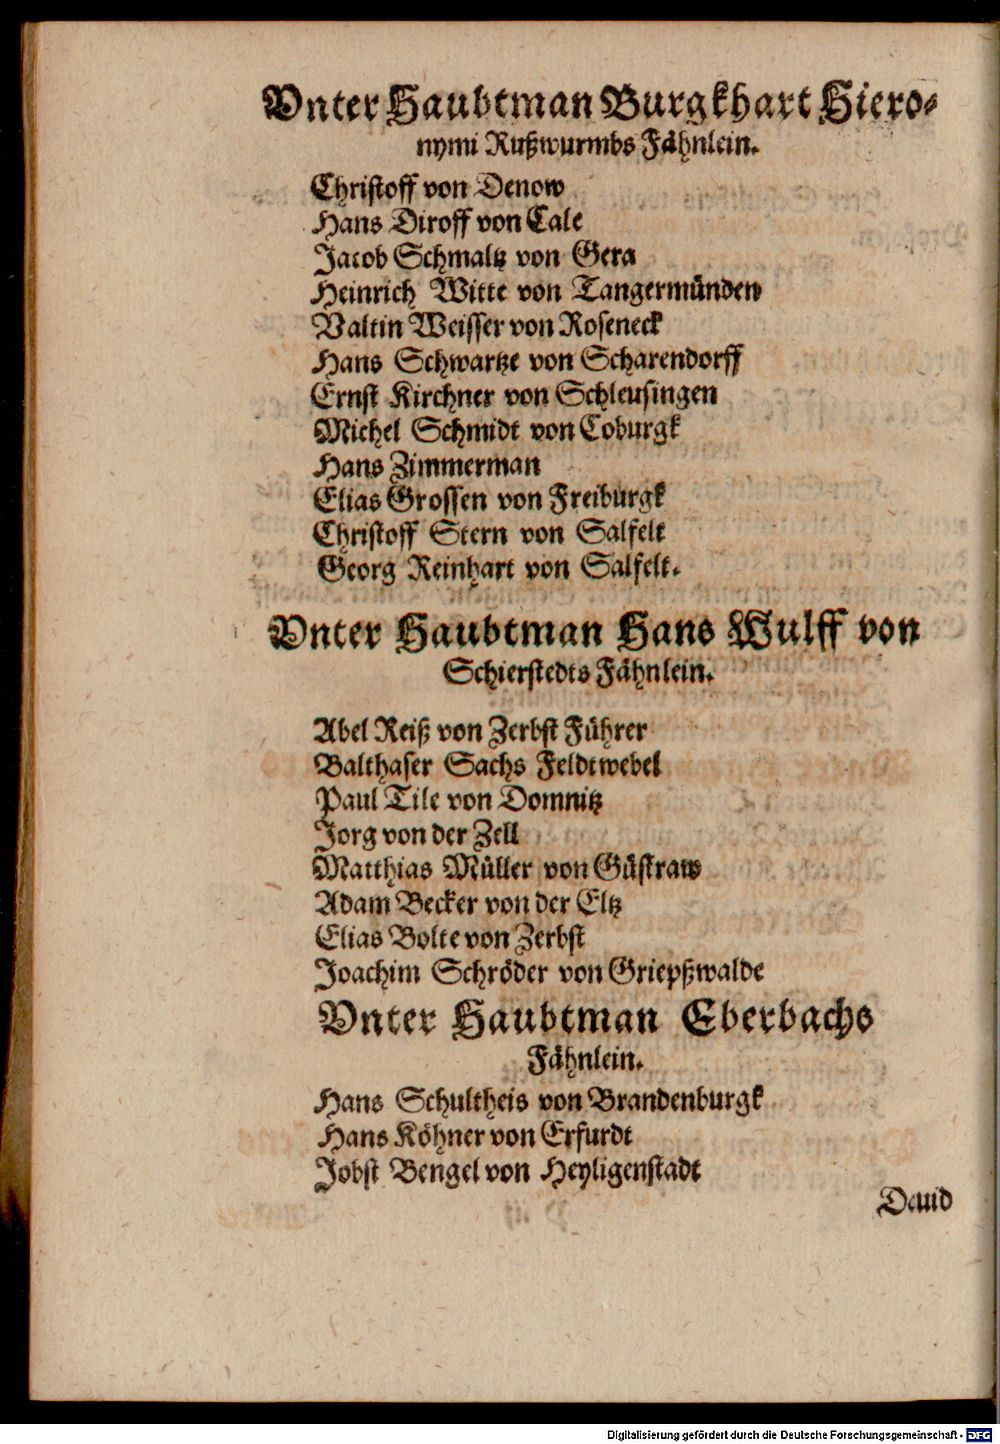 Vnter Haubtman Burgkhart Hiero-
nymi Rußwurmbs Fähnlein.
Christoff von Denow
Hans Diroff von Cale
Jacob Schmaltz von Gera
Heinrich Witte von Tangermünden
Valtin Weisser von Roseneck
Hans Schwartze von Scharendorff
Ernst Kirchner von Schleusingen
Michel Schmidt von Coburgk
Hans Zimmerman
Elias Grossen von Freiburgk
Christoff Stern von Salfelt
Georg Reinhart von Salfelt.
Vnter Haubtman Hans Wulff von
Schierstedts Fähnlein.
Abel Reiß von Zerbst Führer
Balthaser Sachs Feldtwebel
Paul Tile von Domnitz
Jorg von der Zell
Matthias Müller von Güstraw
Adam Becker von der Eltz
Elias Bolte von Zerbst
Joachim Schröder von Griepßwalde
Vnter Haubtman Eberbachs
Fähnlein.
Hans Schultheis von Brandenburgk
Hans Köhner von Erfurdt
Jobst Bengel von Heyligenstadt
Dauid
Digitalisierung gefördert durch die Deutsche Forschungsgemeinschaft - DFG